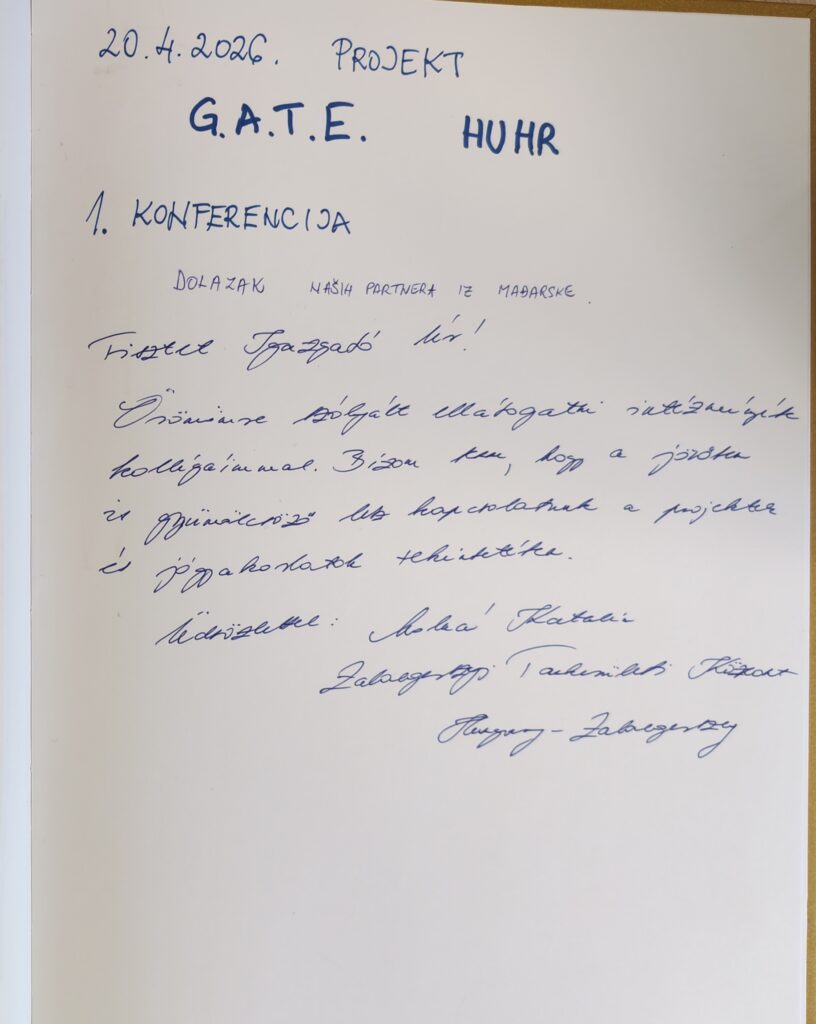 20.4.2026. PROJEKT
G.A.T.E. HUHR
1. KONFERENCIJA
DOLAZAK NAŠIH PARTNERA IZ MAĐARSKE.
Tisztelt Igazgató Úr!
Örömünkre szolgált ellátogatni intézményük
kollégáimmal. Bízom benne, hogy a jövőben
is gyümölcsöző lesz kapcsolatunk a projektek
és jógyakorlatok tekintetében.
Üdvözlettel: Katalin
Zalaegerszegi Tankerületi Központ
Hungary - Zalaegerszeg